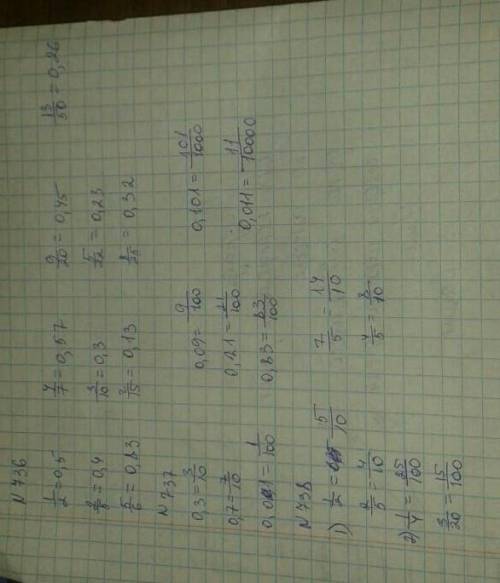 N 736
1/2 = 0,5   4/7 = 0,57   9/20 = 0,45   13/50 = 0,26
= 0,4   3/10 = 0,3   5/22 = 0,23
5/6 = 0,83   2/15 = 0,13   8/25 = 0,32
N 737
0,3 = 3/10   0,09 = 9/100   0,101 = 101/1000
0,7 = 7/10   0,21 = 21/100   0,011 = 11/10000
0,01 = 1/100   0,83 = 83/100
N 738
1) 1/2 = 5/10   7/5 = 14/10
2/5 = 4/10   4/5 = 8/10
2) 1/4 = 25/100
3/20 = 15/100